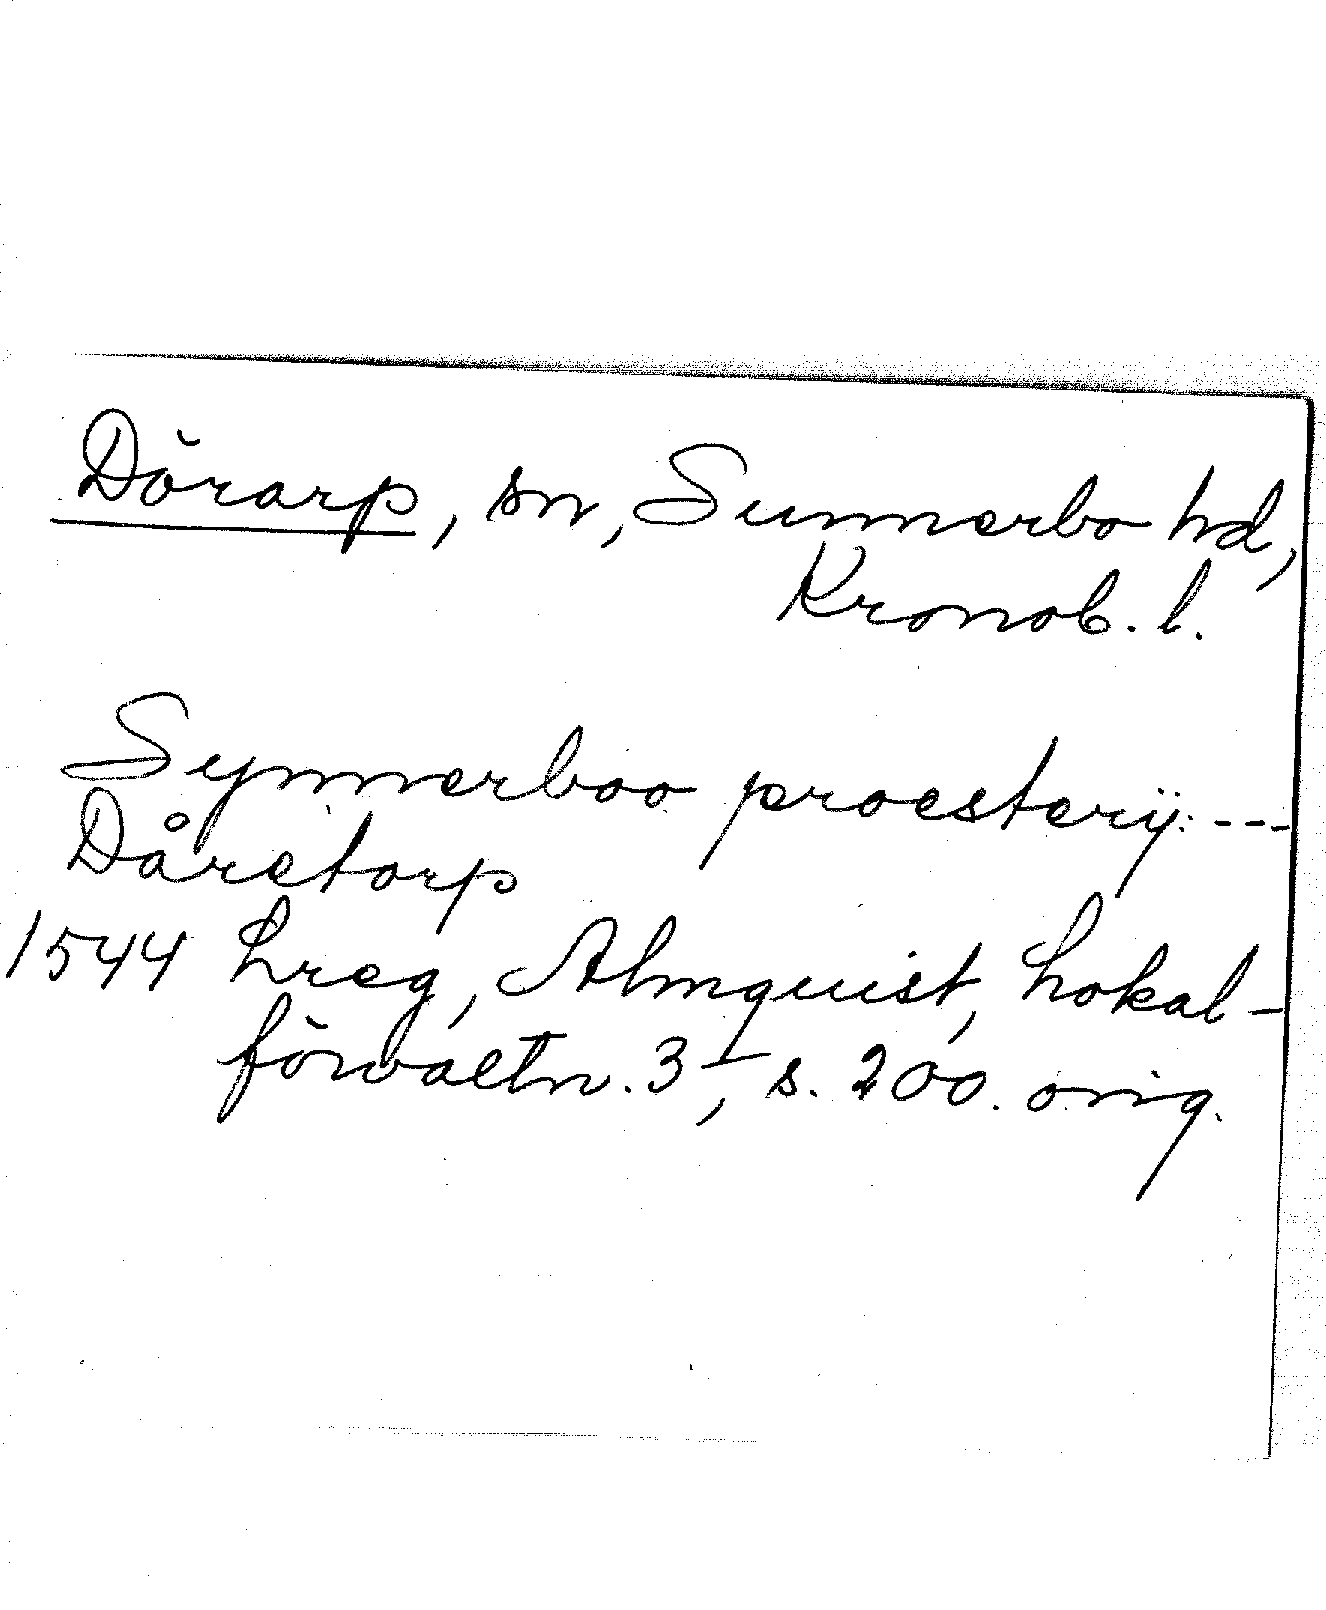 Dörarp, sn, Sunnerbo hd,
Kronob. l.
Synnerboo proesterÿ: ---
Dåretorp
1544 Lreg, Almquist, Lokal-
förvaltn. 3, s. 200. orig.